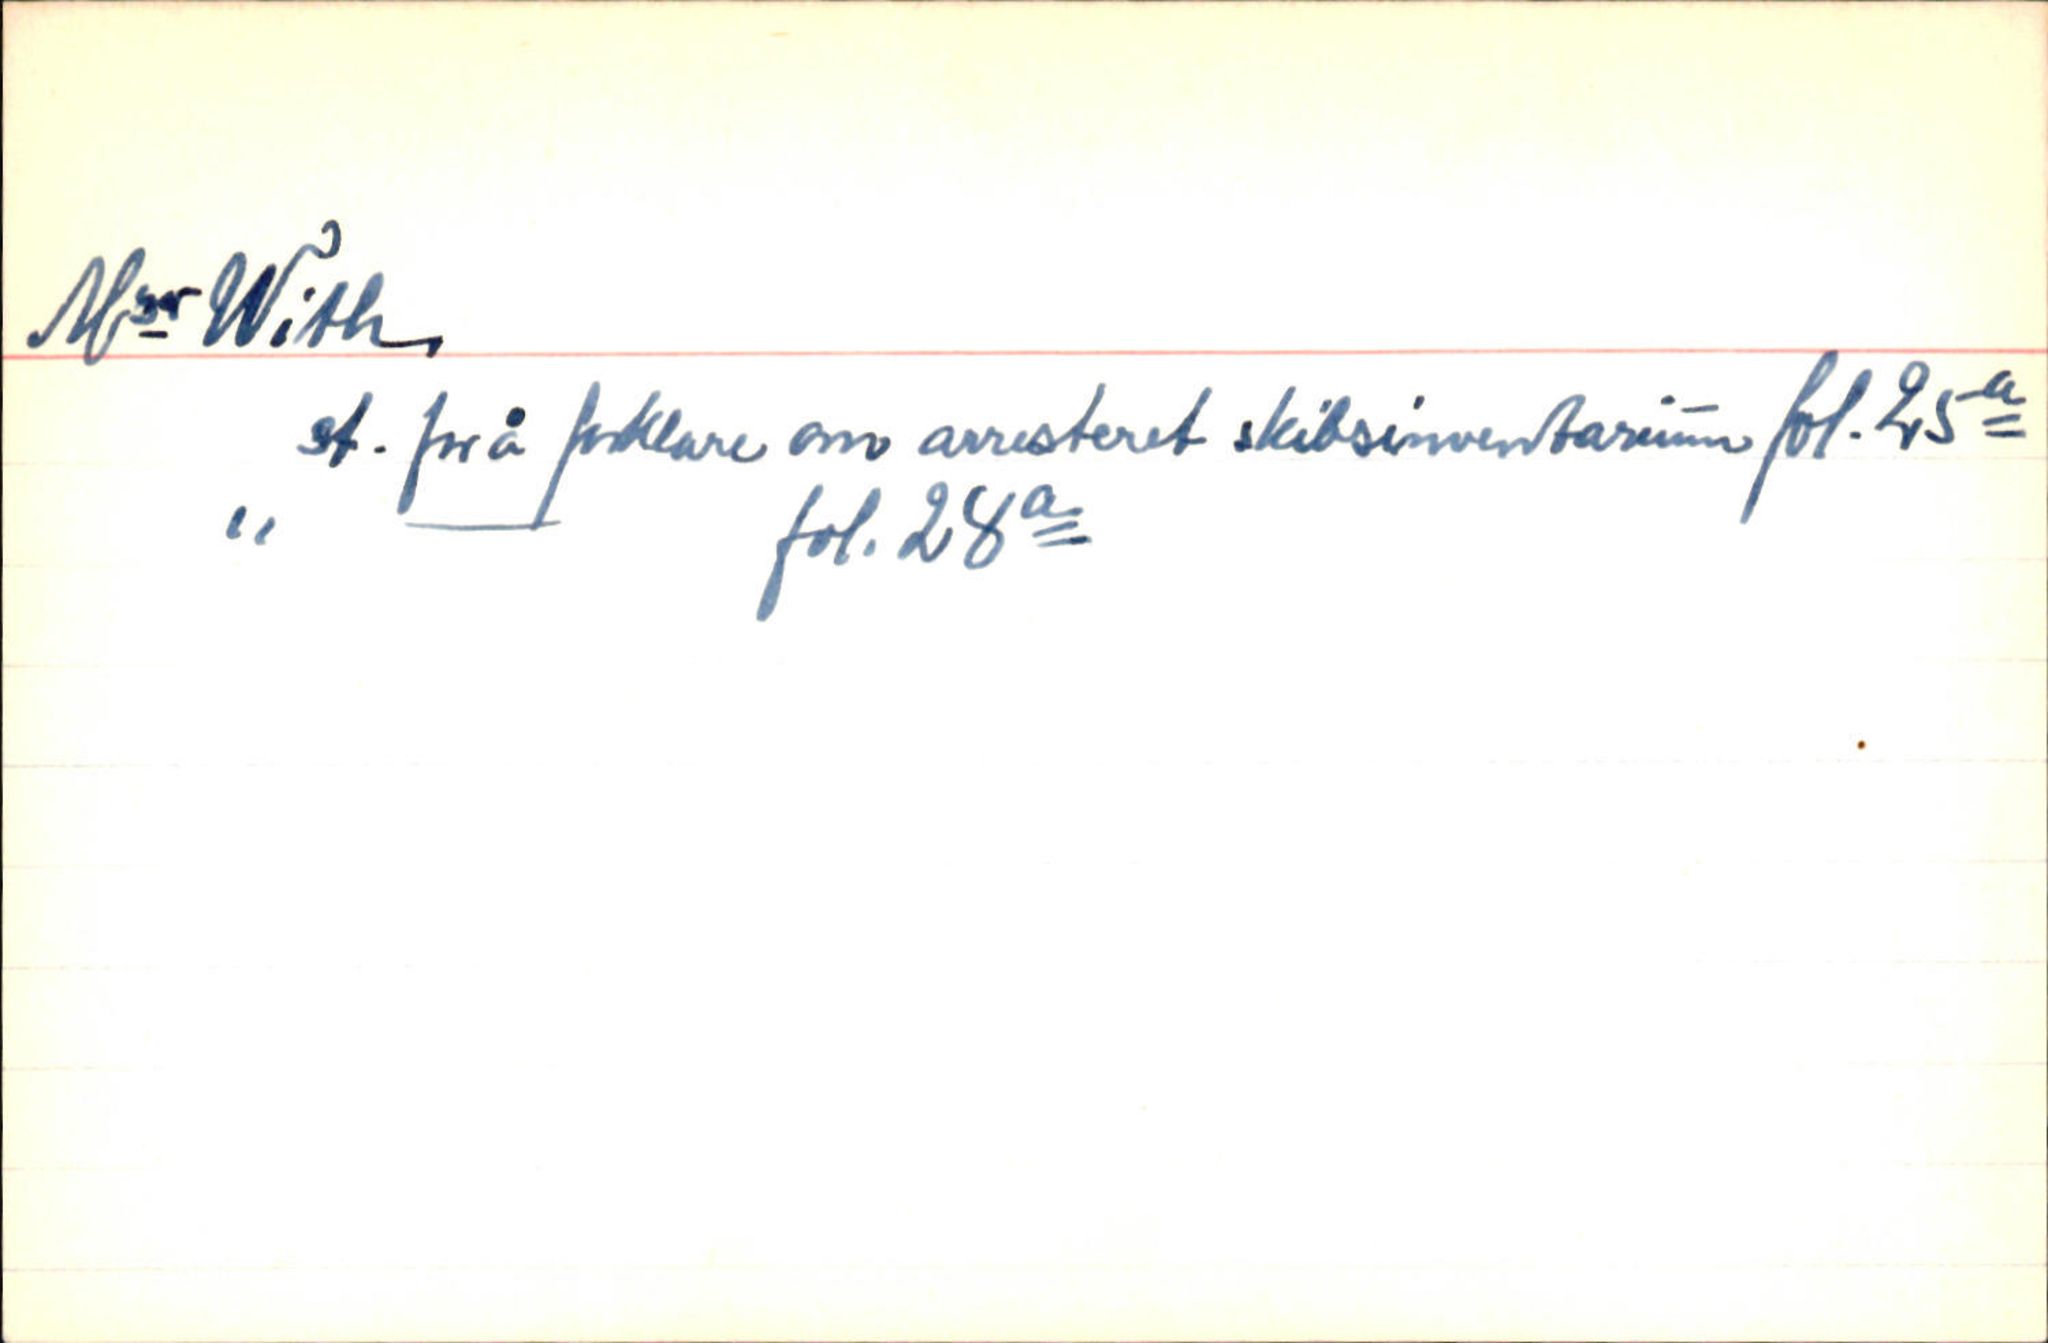 Msr With,
st. for å forklare om arresteret skibsinventarium fol. 25a
" — fol. 28a